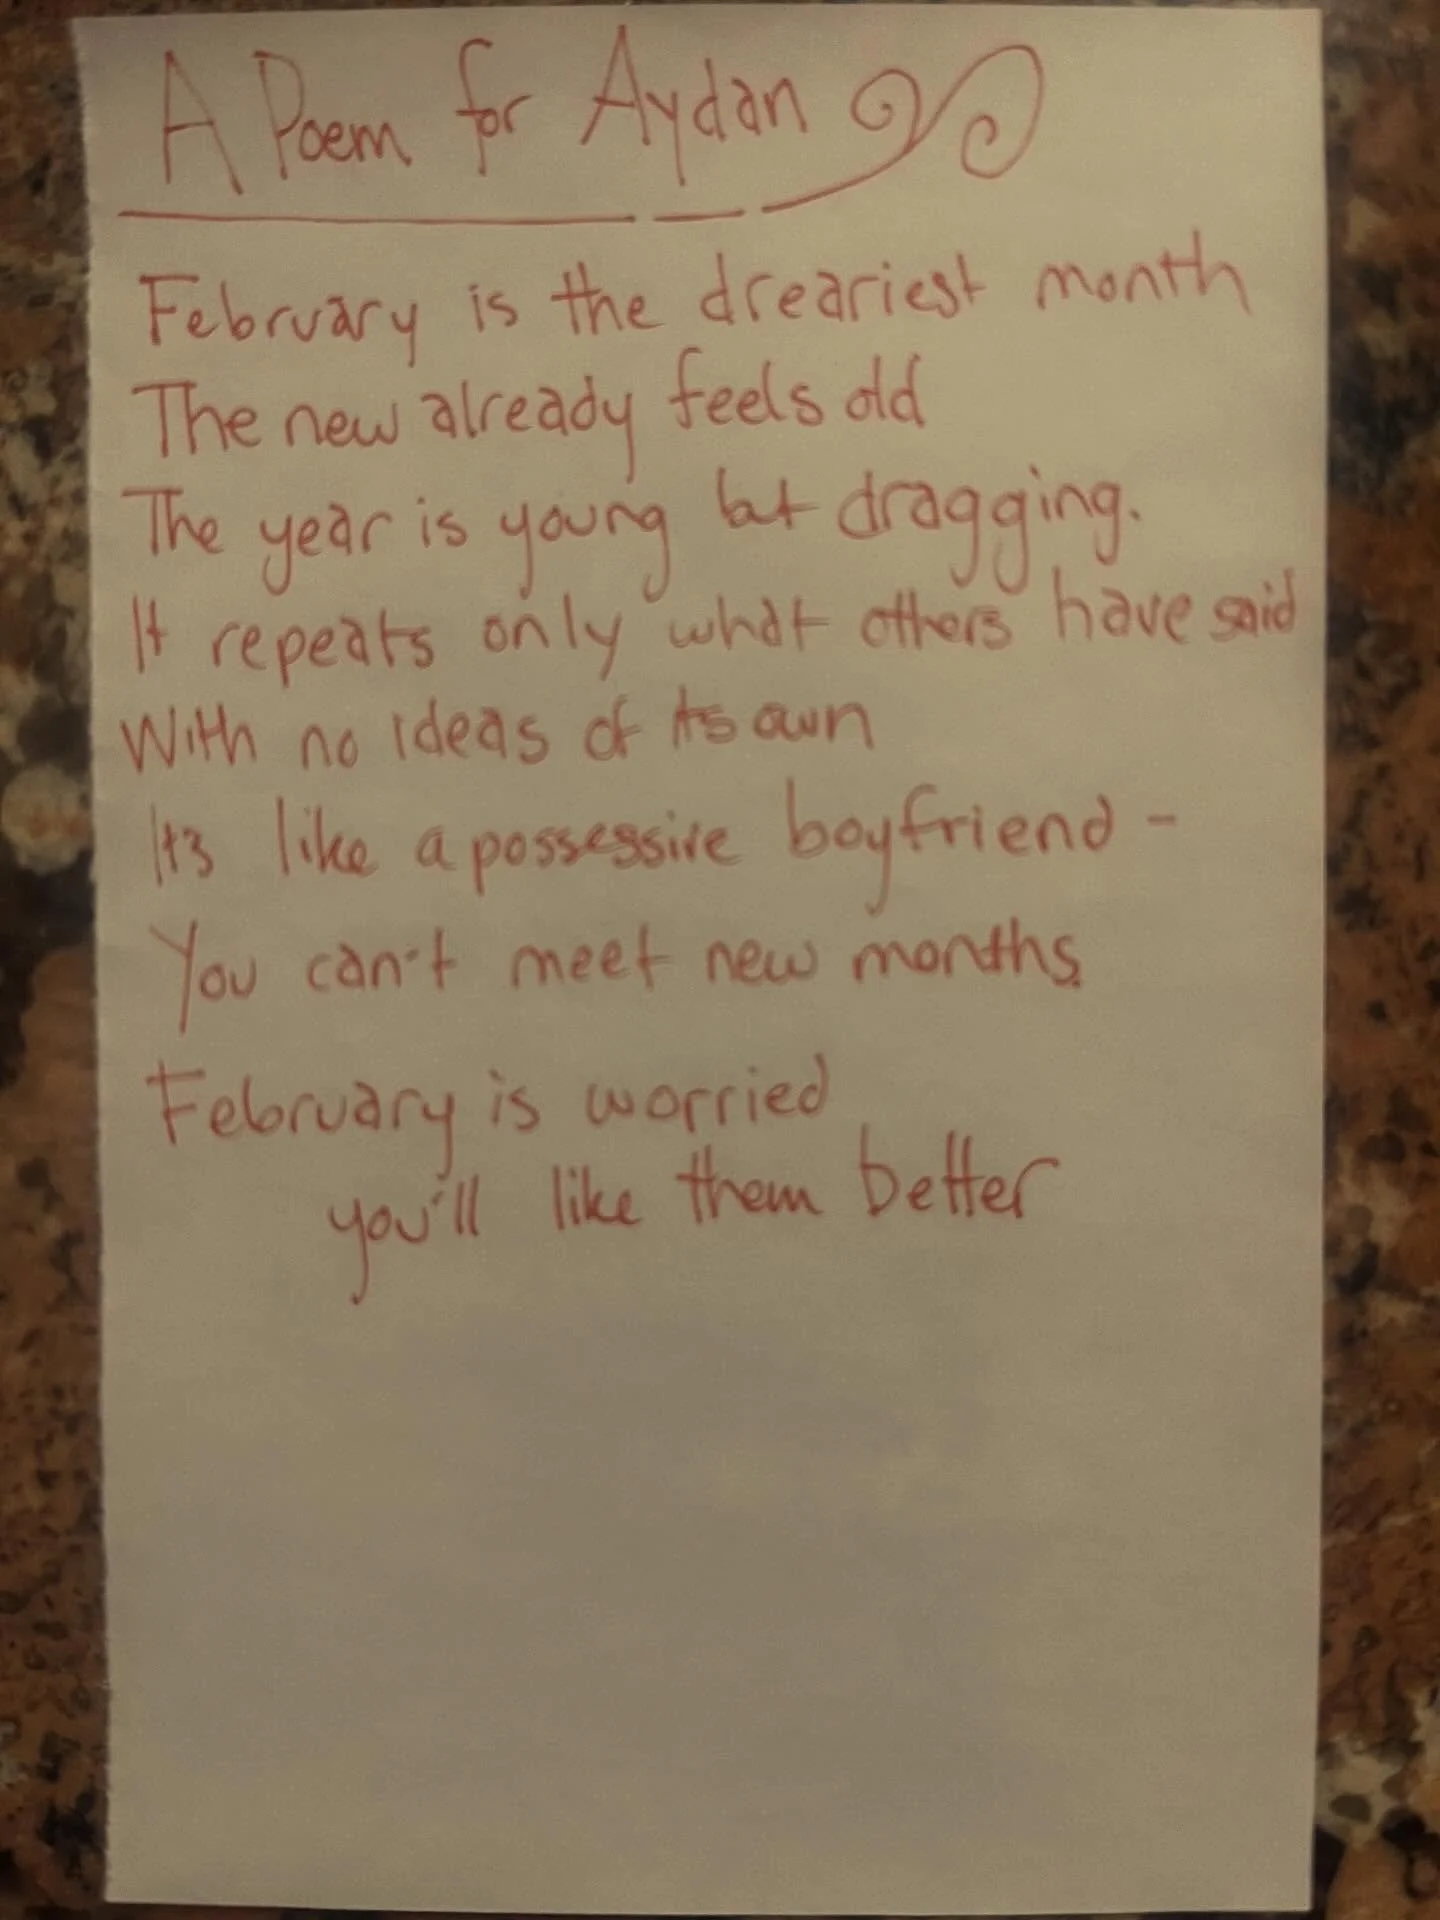 A Poem for Aydan
February is the dreariest month
The new already feels old
The year is young but dragging.
It repeats only what others have said
With no ideas of its own
Its like a possessive boyfriend -
You can't meet new months.
February is worried
you'll like them better